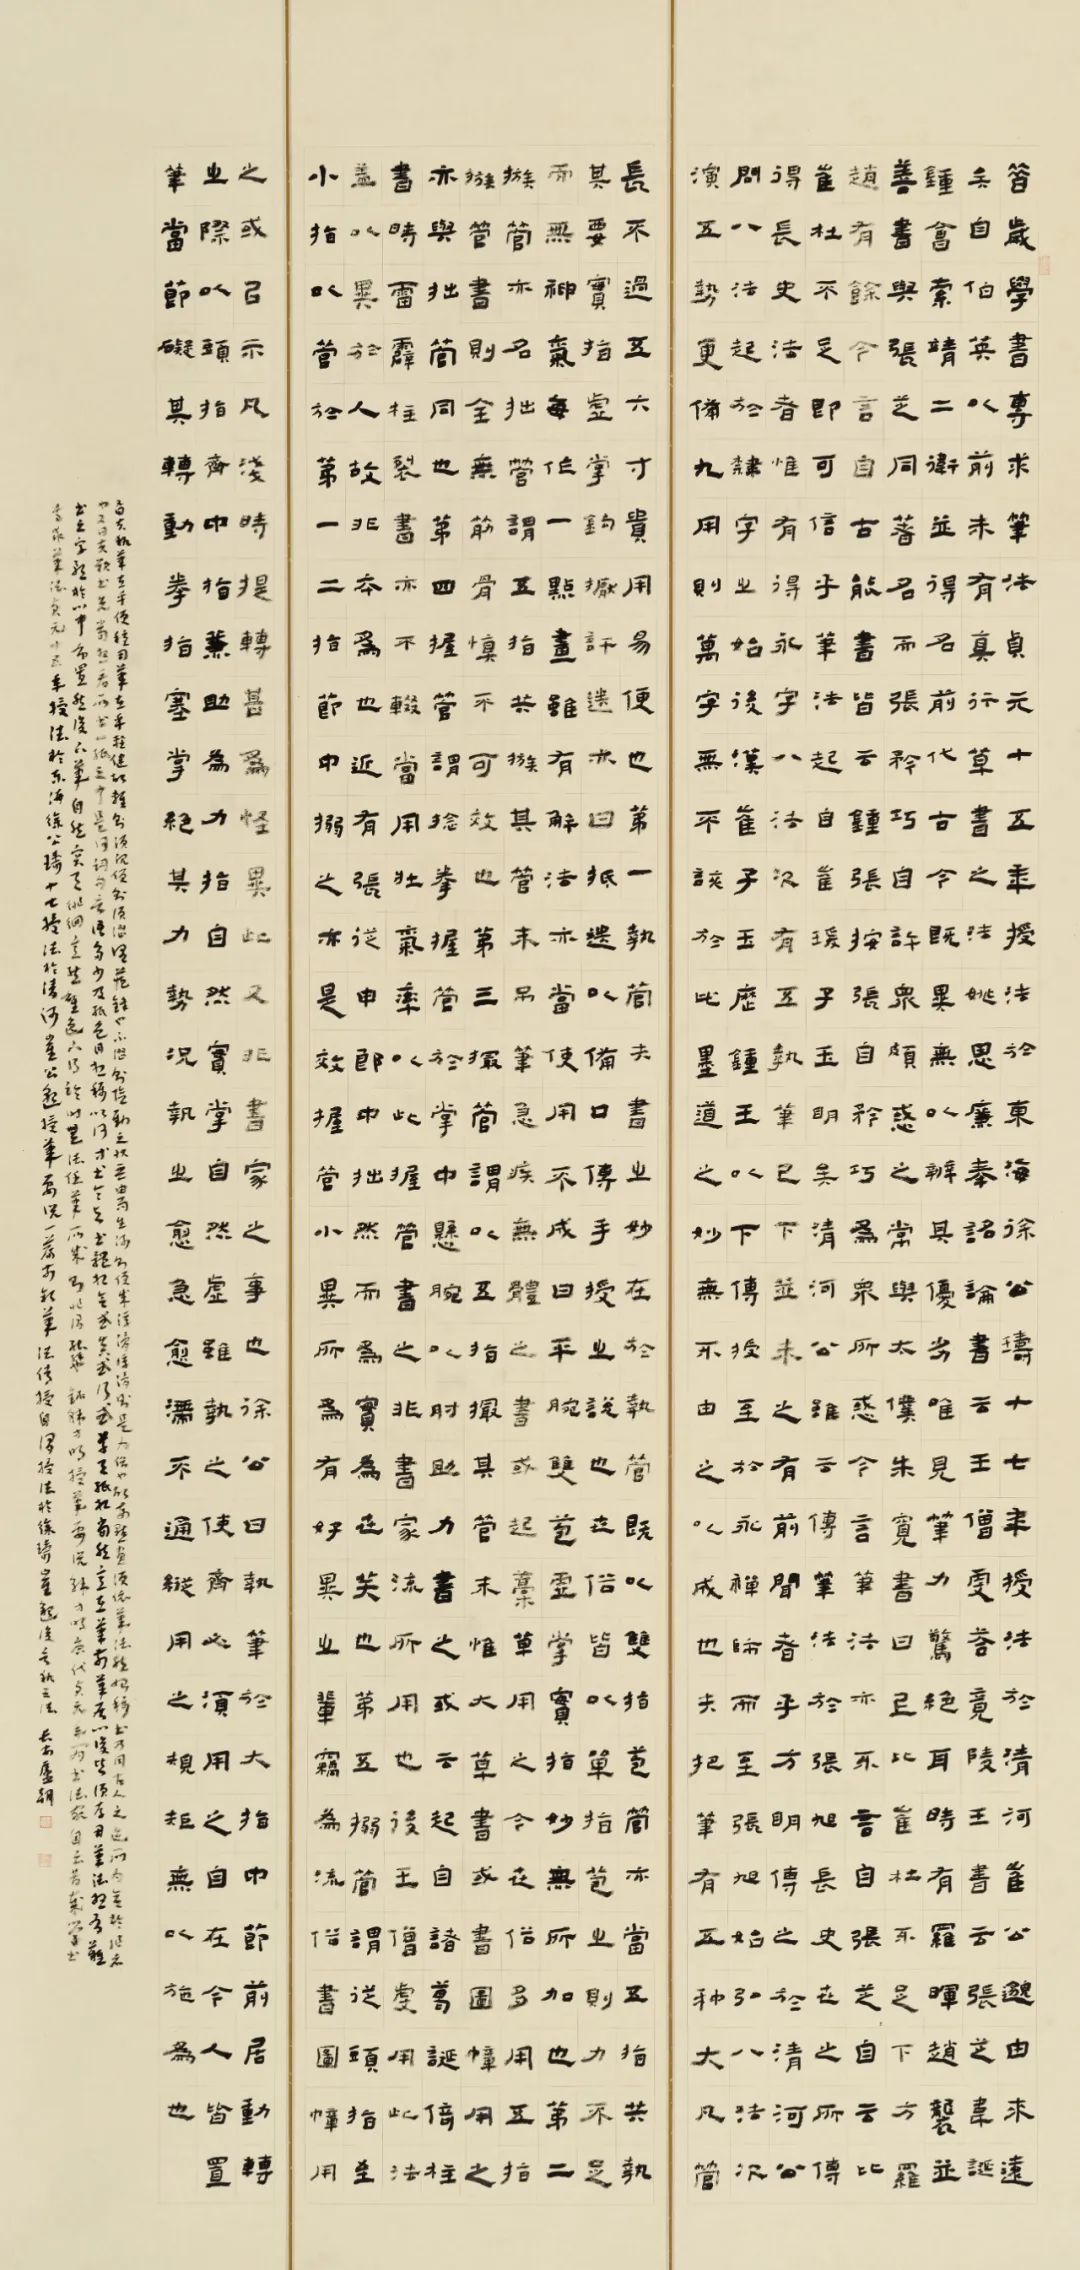 昔歲學書專求筆法貞元十五年授法於東海徐公璹十七年授法於清河崔公邈由來遠
矣自伯英以前未有真行草書之法姚思廉奉詔論書云王僧虔荅竟陵王書云張芝韋誕
鍾會索靖二衛並得名前代古今既異無以辨其優劣唯見筆力驚絕耳時有羅暉趙襲並
善書與張芝同著名而張矜巧自許衆頗惑之常與太僕朱寬書曰上比崔杜不足下方羅
趙有餘今言自古能書皆云鍾張按張自矜巧為衆所惑今言筆法亦不言自張芝自云比
崔杜不足即可信乎筆法起自崔瑗子玉明矣清河公雖云傳筆法於張旭長史世之所傳
得長史法者惟有得永字八法次有五執筆已下並未之有前聞者乎方明傳之於清河公
問八法起於隸字之始後漢崔子玉歷鍾王以下傳授至於永禪師而至張旭始弘八法次
演五勢更備九用則萬字無不該於此墨道之妙無不由之以成也夫把筆有五種大凡管
長不過五六寸貴用易便也第一執管夫書之妙在於執管既以雙指苞管亦當五指共執
其要實指虛掌鉤擫訐送亦曰抵送以備口傳手授之說也世俗皆以單指苞之則力不足
而無神氣每作一點畫雖有解法亦當使用不成曰平腕雙苞虛掌實指妙無所加也第二
簇管亦名拙管謂五指共簇其管末吊筆急疾無體之書或起藁草用之今世俗多用五指
簇管書則全無筋骨慎不可效也第三撮管謂以五指撮其管末惟大草書或書圖幛用之
亦與拙管同也第四握管謂捻拳握管於掌中懸腕以肘助力書之或云起自諸葛誕倚柱
書時雷霹柱裂書亦不輟當用壯氣率以此握管書之非書家流所用也後王僧虔用此法
蓋以異於人故非本為也近有張從申郎中拙然而為實為世笑也第五搦管謂從頭指至
小指以管於第一二指節中搦之亦是效握管小異所為有好異之輩竊為流俗書圖幛用
之或以示凡淺時提轉甚為怪異此又非書家之事也徐公曰執筆於大指中節前居動轉
之際以頭指齊中指兼助為力指自然實掌自然虛雖執之使齊必須用之自在今人皆置
筆當節礙其轉動拳指塞掌絕其力勢況執之愈急愈滯不通縱用之規矩無以施為也